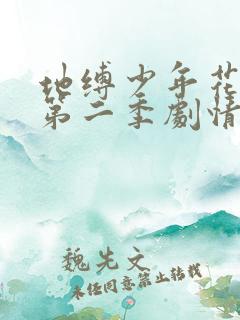 地缚少年花
第二季劇情
魏先文
未经同意禁止转载